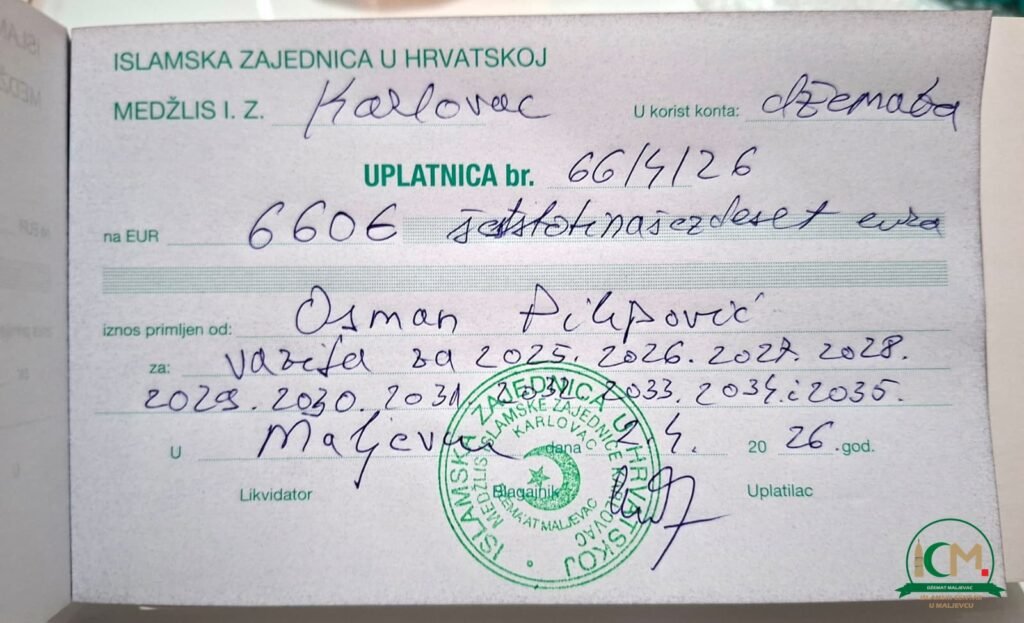 ISLAMSKA ZAJEDNICA U HRVATSKOJ
MEDŽLIS I. Z. Karlovac U korist konta: džemata
UPLATNICA br. 66/4/26
na EUR 660€ šeststotinašezdeset eura
iznos primljen od: Osman Pilipović
za: vazifa za 2025. 2026. 2027. 2028.
2029. 2030. 2031. 2032. 2033. 2034. i 2035.
U Maljevcu dana 2.4. 20 26 .god.
Likvidator Blagajnik Uplatilac
ISLAMSKA ZAJEDNICA U HRVATSKOJ
MEDŽLIS ISLAMSKE ZAJEDNICE KARLOVAC
KARLOVAC
DŽEMAT MALJEVAC
ICM.
DŽEMAT MALJEVAC
U MALJEVCU